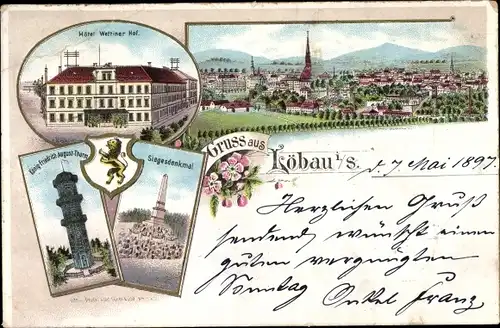 Hôtel Wettiner Hof.
König-Friedrich-August-Thurm
Siegesdenkmal
Gruss aus
Löbau i/S.
d. 7 Mai 1897.
Herzlichen Gruß
sendend, wünscht einen
guten vergnügten
Sonntag Onkel Franz